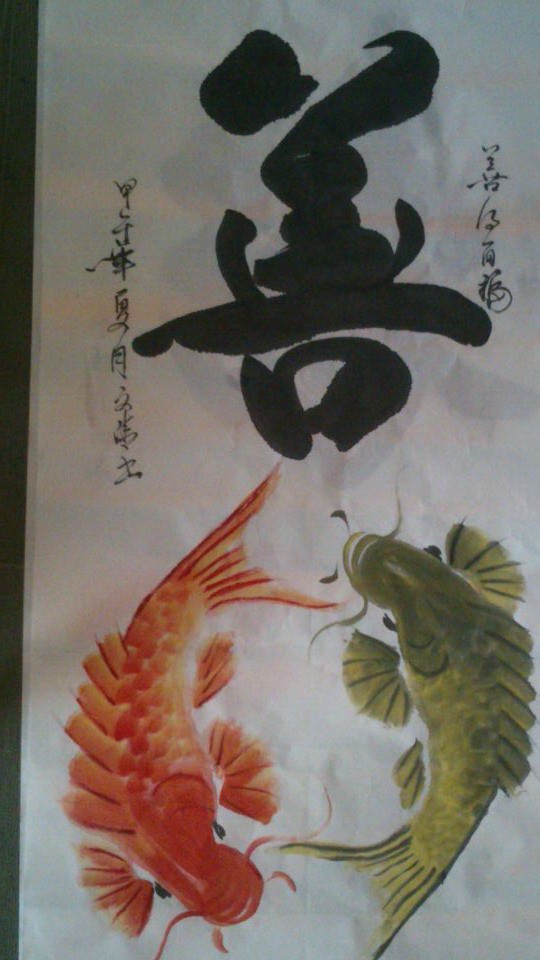 善得百福
善
甲午年夏月文书